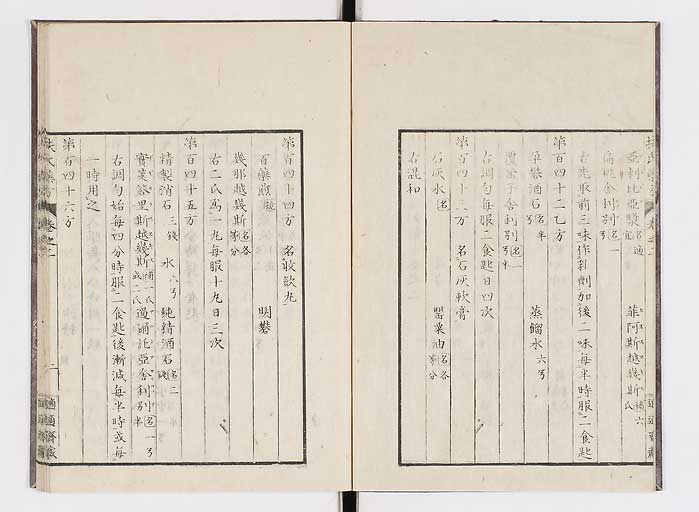 亞剌比亞漿 名適宜 菲阿斯越幾斯 六氏
扁桃舎利別 名一ヶ
右先取前三味作乳劑加後二味每半時服二食匙
第百四十二乙方
孕鹼酒石 名半ヶ 蒸餾水 六ヶ
舎利別 名一ヶ半
右調勻每服二食匙日四次
第百四十三方 名石灰軟膏
石灰水 名 罌粟油 名各等分
右混和
第百四十四方 名收斂丸
百藥煎 明礬
幾那越幾斯 名各等分
右二氏爲一丸每服十九日三次
第百四十五方
精製消石 三錢 水 六ヶ 純精酒石 名二錢
實芰荅里斯越幾斯 一氏或二氏 舎利別 名一ヶ半
右調勻始每四分時服二食匙後漸減每半時或每
一時用之
第百四十六方
扶氏藥方 卷之二
適適齋藏